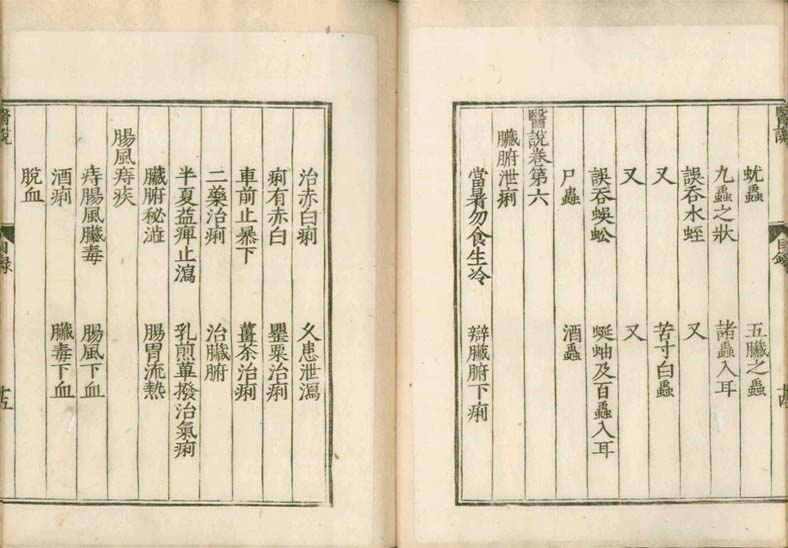 醫說
目錄
蚘蟲 五臟之蟲
九蟲之狀 諸蟲入耳
誤吞水蛭 又
又 苦寸白蟲
又 又
誤吞蜈蚣 蜒蚰及百蟲入耳
尸蟲 酒蟲
醫說卷第六
臟腑泄痢
當暑勿食生冷 辯臟腑下痢
治赤白痢 久患泄瀉
痢有赤白 罌粟治痢
車前止暴下 薑茶治痢
二藥治痢 治臟腑
半夏益脾止瀉 乳煎蓽撥治氣痢
臟腑秘澁 腸胃流熱
腸風痔疾
痔腸風臟毒 腸風下血
酒痢 臟毒下血
脫血
醫說
目錄
十五